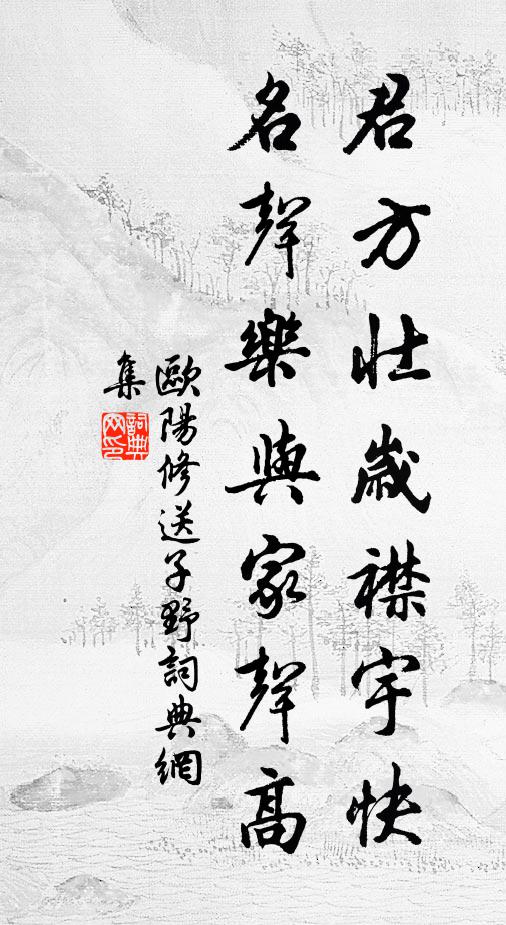 君方壯歲襟宇快
名聲樂與家聲高
歐陽修送子野詞典網
集
詞典网印